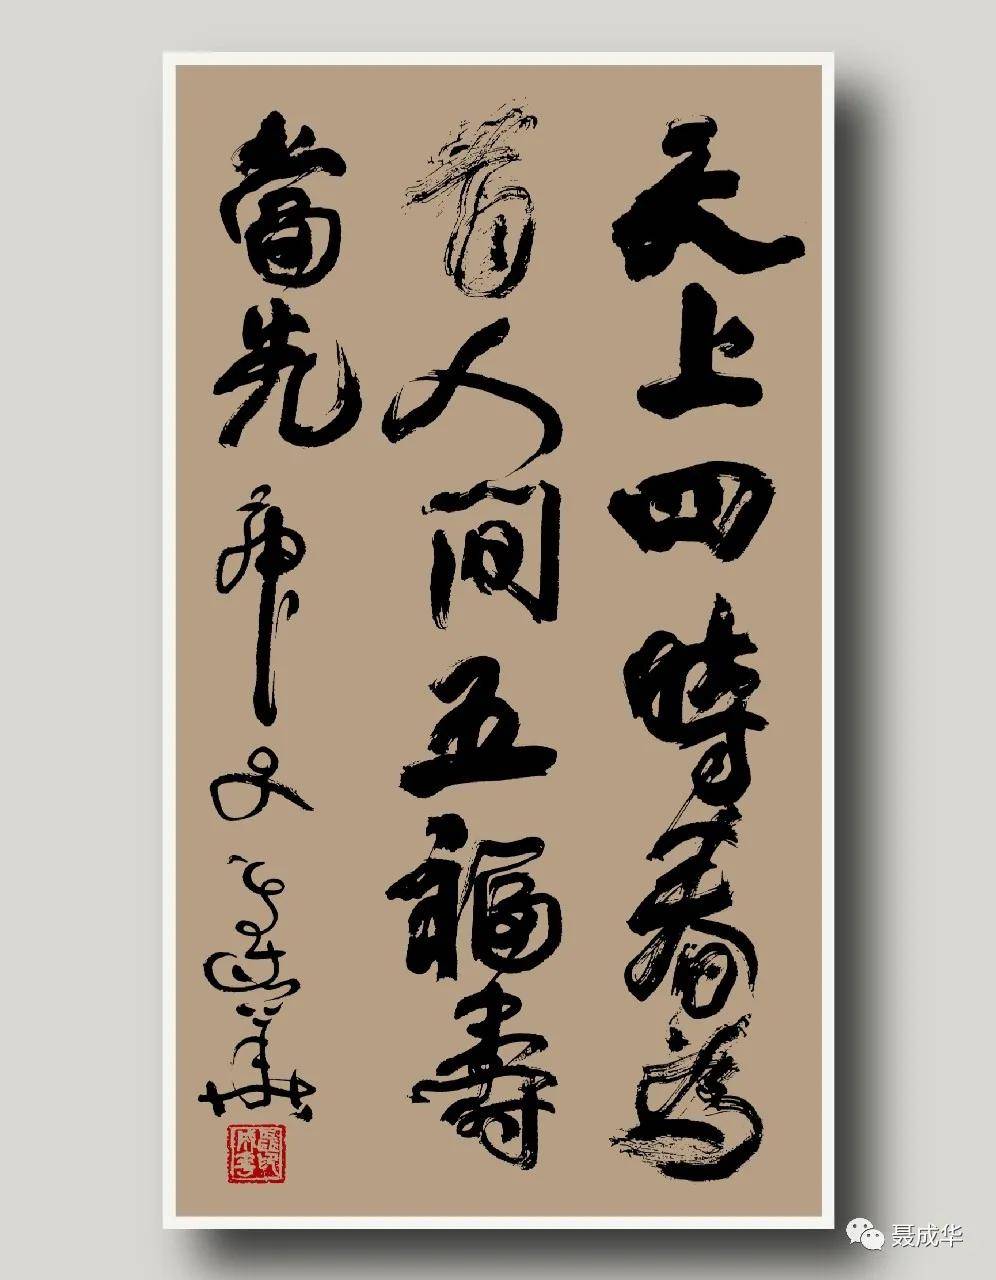 天上四時春為
首人間五福壽
當先
聶成華
聂成华